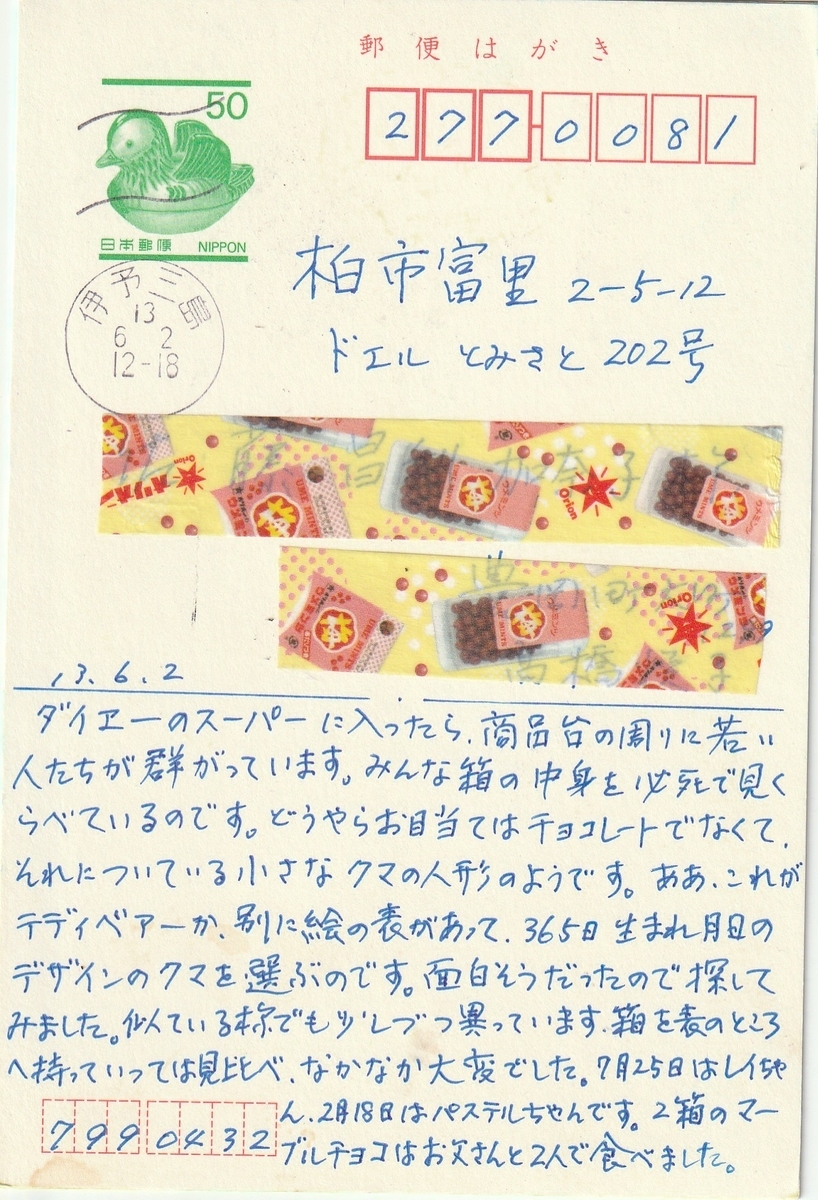 郵便はがき
50
277-0081
日本郵便 NIPPON
伊予三島
13
6 2
12-18
柏市富里 2-5-12
ドエル とみさと 202号
Orion
オリオン
UME MINTS
Orion
UME MINTS
Orion
13.6.2
ダイエーのスーパーに入ったら、商品台の周りに若い
人たちが群がっています。みんな箱の中身を必死で見く
らべているのです。どうやらお目当てはチョコレートでなくて、
それについている小さなクマの人形のようです。ああ、これが
テディベアーか、別に絵の表があって、365日生まれ月日の
デザインのクマを選ぶのです。面白そうだったので探して
みました。似ている様でも少しづつ異っています、箱を表のところ
へ持っていっては見比べ、なかなか大変でした。7月25日はレイちゃ
ん、2月18日はパステルちゃんです。2箱のマー
ブルチョコはお父さんと2人で食べました。
7990432